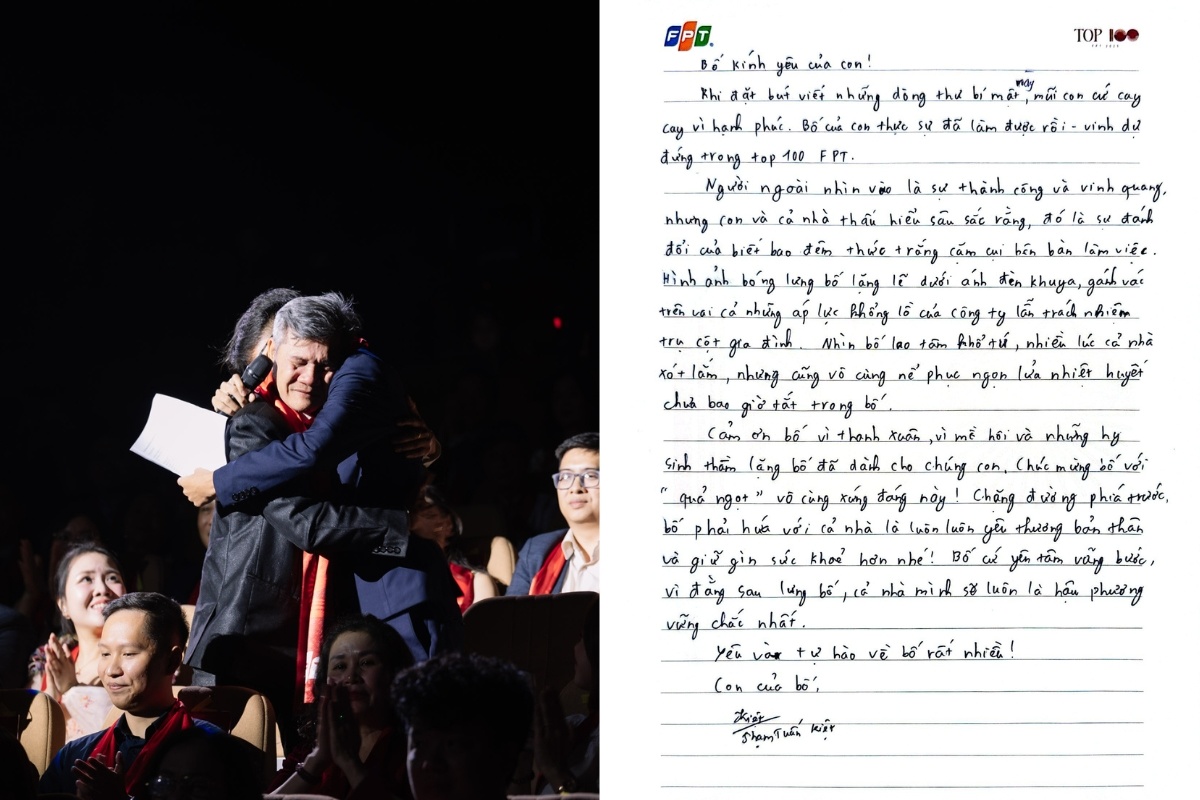 FPT
TOP 100
FPT 2025
Bố kính yêu của con!
Khi đặt bút viết những dòng thư bí mật này, mũi con cứ cay
cay vì hạnh phúc. Bố của con thực sự đã làm được rồi - vinh dự
đứng trong top 100 FPT.
Người ngoài nhìn vào là sự thành công và vinh quang,
nhưng con và cả nhà thấu hiểu sâu sắc rằng, đó là sự đánh
đổi của biết bao đêm thức trắng cặm cụi bên bàn làm việc.
Hình ảnh bóng lưng bố lặng lẽ dưới ánh đèn khuya, gánh vác
trên vai cả những áp lực khổng lồ của công ty lẫn trách nhiệm
trụ cột gia đình. Nhìn bố lao tâm khổ tứ, nhiều lúc cả nhà
xót lắm, nhưng cũng vô cùng nể phục ngọn lửa nhiệt huyết
chưa bao giờ tắt trong bố.
Cảm ơn bố vì thanh xuân, vì mồ hôi và những hy
sinh thầm lặng bố đã dành cho chúng con. Chúc mừng bố với
"quả ngọt" vô cùng xứng đáng này! Chặng đường phía trước,
bố phải hứa với cả nhà là luôn luôn yêu thương bản thân
và giữ gìn sức khoẻ hơn nhé! Bố cứ yên tâm vững bước,
vì đằng sau lưng bố, cả nhà mình sẽ luôn là hậu phương
vững chắc nhất.
Yêu và tự hào về bố rất nhiều!
Con của bố,
Kiệt
Phạm Tuấn Kiệt